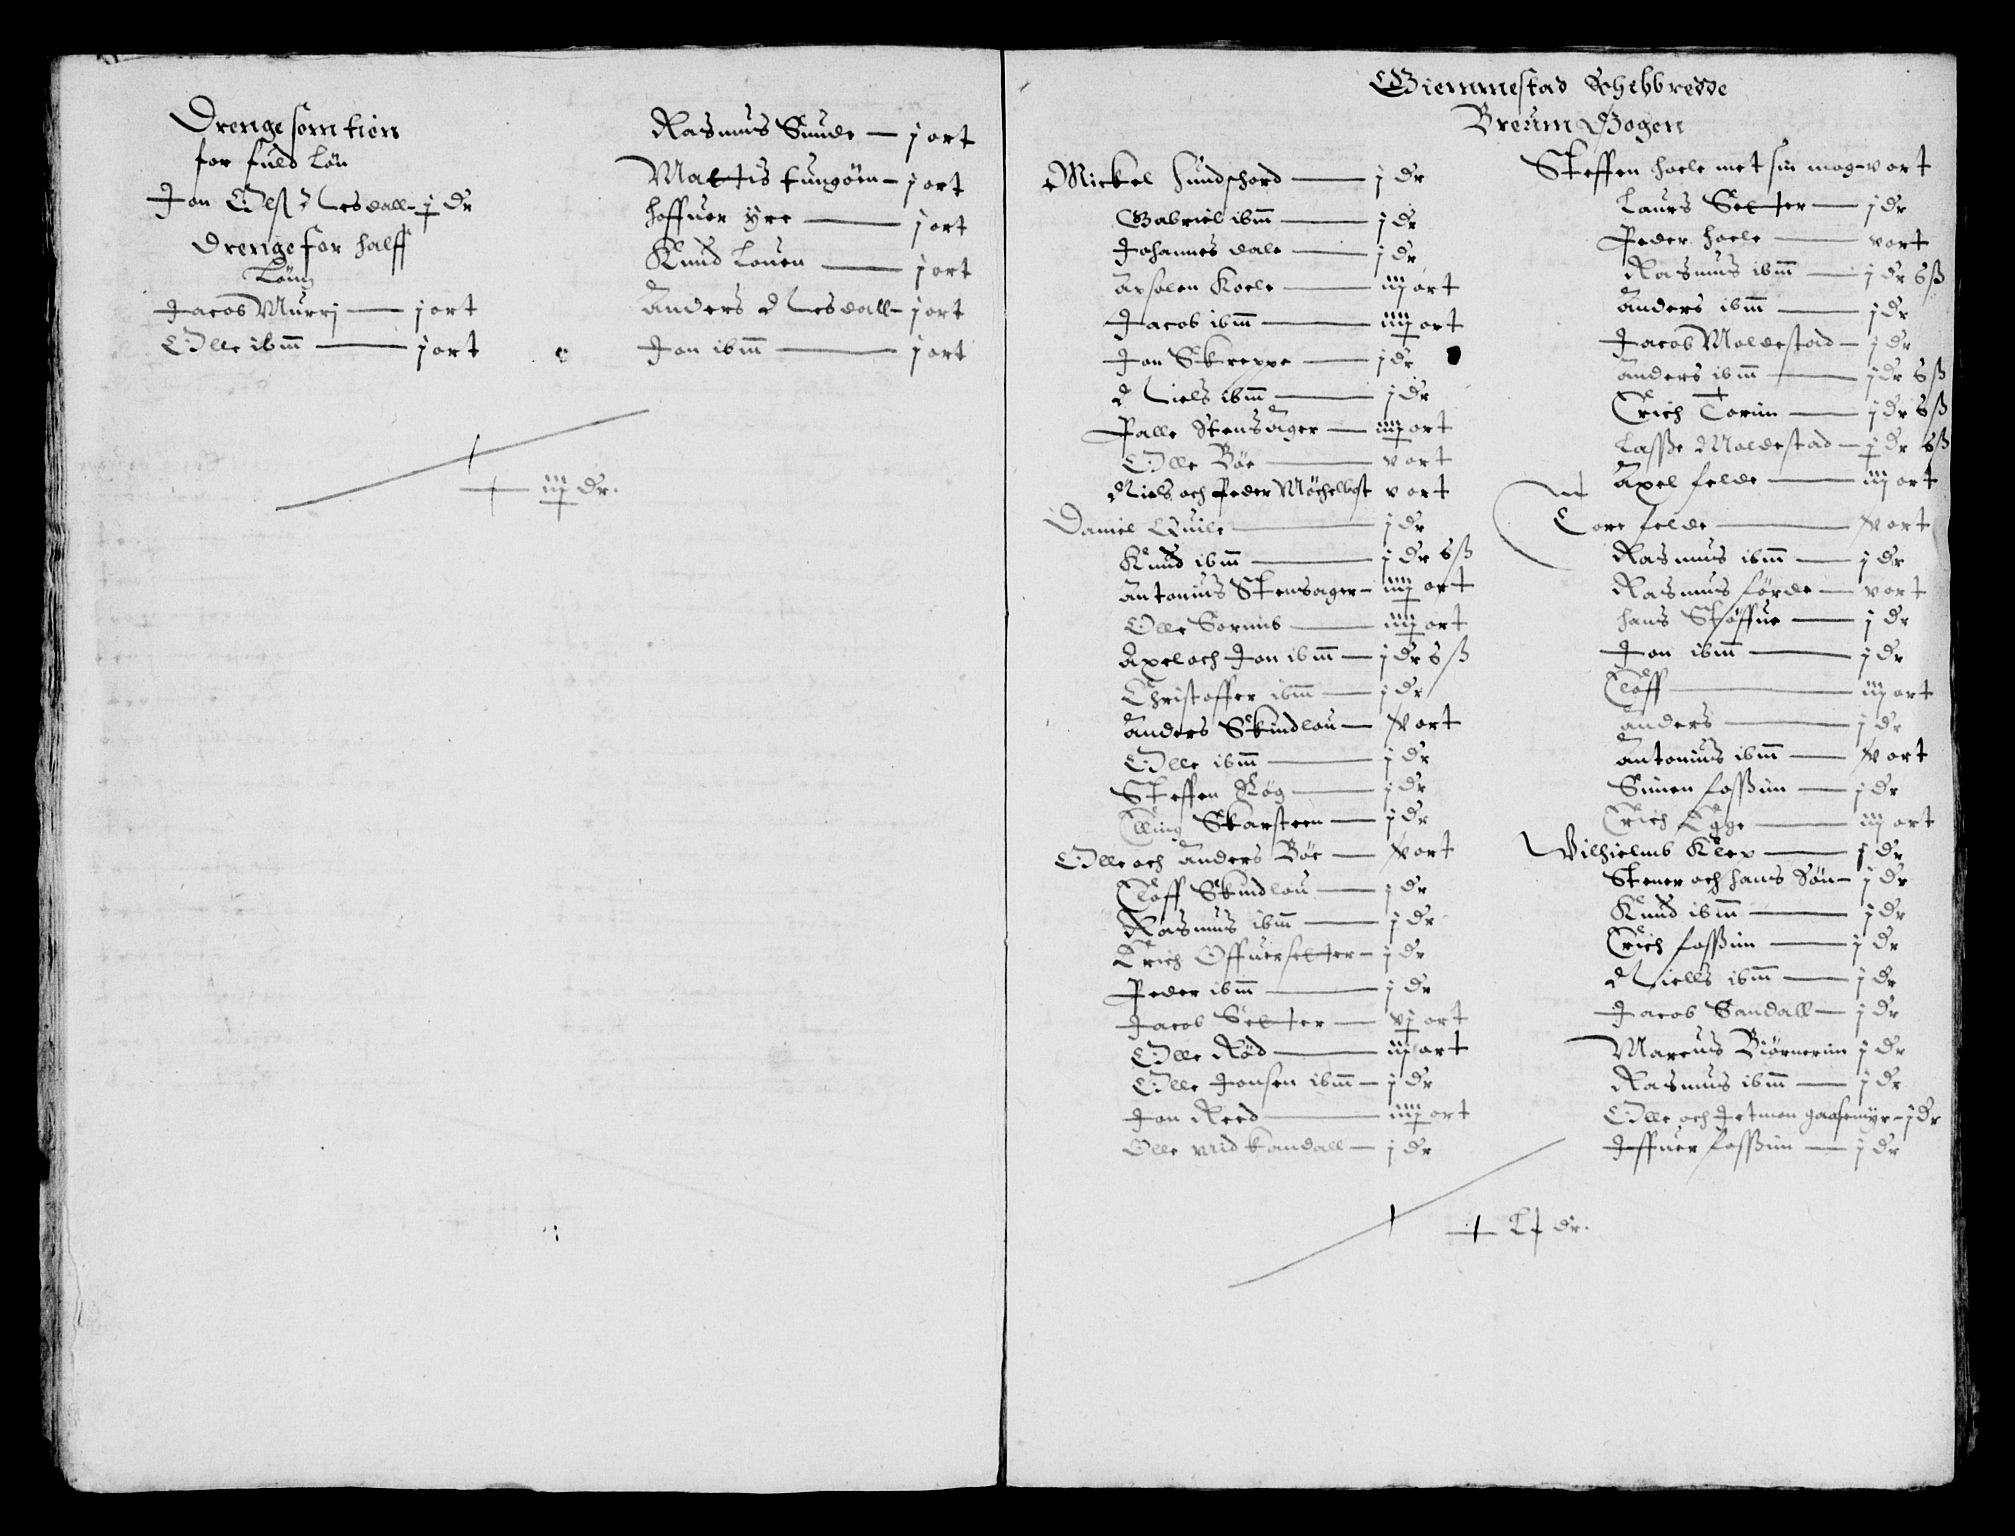 Drenge som tien
for fuld Løn
Jon Olß Nesdall - j dr
Drenge for halff
Løn
Jacob Murrj - j ort
Olle ibm - j ort
Rasmus Sunde - j ort
Mattis tungøen - j ort
hoffuor yre - j ort
Knud Louen - j ort
Anders Nesdall - j ort
Jon ibm - j ort
iij dr.
Giemmestad Schibbredde
Breum Bogen
Mickel Sundfhord - j dr
Gabriel ibm - j dr
Johannes dale - j dr
Axsolen Koele - iij ort
Jacob ibm - iiij ort
Jon Skreppe - j dr
Niels ibm - j dr
Palle Stensager - iiij ort
Olle Bøe - v ort
Niels och Peder Møchelbost v ort
Daniel Quile - j dr
Knud ibm - j dr 6 ß
Antonius Stensager - iiij ort
Olle Sorimb - iiij ort
Axel och Jon ibm - j dr 6 ß
Christoffer ibm - j dr
Anders Skindlou - v ort
Olle ibm - j dr
Steffen Røg - j dr
Elling Skarsteen - j dr
Olle och Anders Bøe - v ort
Eloff Skindlou - j dr
Rasmus ibm - j dr
Erich Offuerselter - j dr
Peder ibm - j dr
Jacob Selter - vj ort
Olle Rød - iij ort
Olle Jonsen ibm - j dr
Jon Reed - iiij ort
Olle vid kandall - j dr
Steffen hoele met sin mog - v ort
Laurs Selter - j dr
Peder hoele - v ort
Rasmus ibm - j dr 6 ß
Anders ibm - j dr
Jacob Moldestad - j dr
Anders ibm - j dr 6 ß
Erich Torim - j dr 6 ß
Lasse Moldestad - j dr 6 ß
Axel felde - iij ort
Tore felde - v ort
Rasmus ibm - j dr
Rasmus førde - v ort
hans Støffue - j dr
Jon ibm - j dr
Eloff - iij ort
Anders - j dr
Antonius ibm - v ort
Simen fossßim - j dr
Erich Egge - iij ort
Wilhielmb Klep - j dr
Stener och hans Søn - j dr
Knud ibm - j dr
Erich foßßim - j dr
Niells ibm - j dr
Jacob Sandall - j dr
Marcus Biørnerim j dr
Rasmus ibm - j dr
Olle och Jetmon gaasemyr - j dr
Joffuer foßßim - j dr
Lj dr.